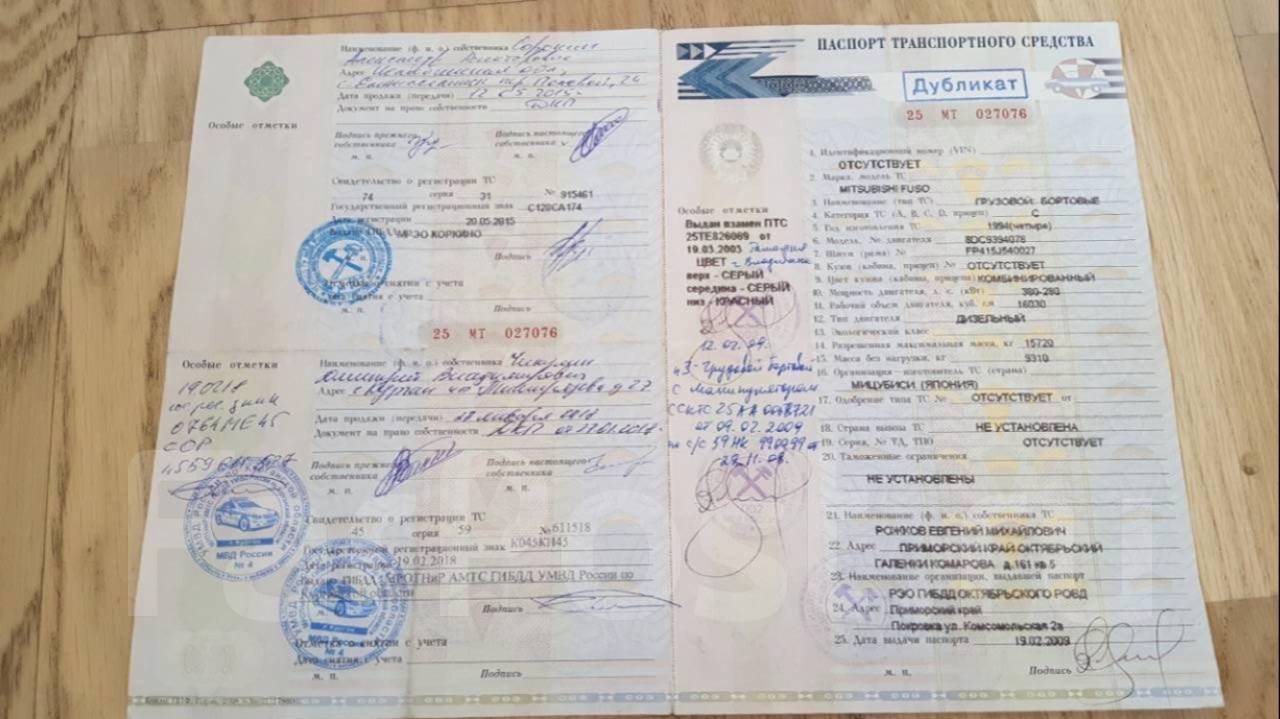 Наименование (ф. и. о.) собственника Сорокин
Александр
Адрес Челябинская обл.
г. Еманжелинск пер. Полевой, 24
Дата продажи (передачи) 12.05.2015г
Документ на право собственности ДКП
Особые отметки
Подпись прежнего собственника
Подпись настоящего собственника
м. п.
м. п.
Свидетельство о регистрации ТС
74 серия 31 № 915461
Государственный регистрационный знак С120СА174
Дата регистрации 20.05.2015
МРЭО КОРКИНО
Подпись
снятии с учета
снятия с учета
м. п.
Подпись
25 МТ 027076
Особые отметки
190218
0764МЕ45
СОР
Наименование (ф. и. о.) собственника Чикулин
Дмитрий Владимирович
Адрес г. Курган д 27
Дата продажи (передачи) 27 января 2018
Документ на право собственности ДКП от 27.01.2018г
Подпись прежнего собственника
Подпись настоящего собственника
м. п.
м. п.
Свидетельство о регистрации ТС
45 серия 59 №611518
Государственный регистрационный знак К045КН45
Дата регистрации 19.02.2018
Выдано ГИБДД РОТНиР АМТС ГИБДД УМВД России по
Курганской области
МВД России
№ 4
Подпись
Отметка о снятии с учета
Дата снятия с учета
№ 4
м. п.
Подпись
ПАСПОРТ ТРАНСПОРТНОГО СРЕДСТВА
Дубликат
25 МТ 027076
1. Идентификационный номер (VIN)
ОТСУТСТВУЕТ
2. Марка, модель ТС
MITSUBISHI FUSO
3. Наименование (тип ТС) ГРУЗОВОЙ- БОРТОВЫЕ
4. Категория ТС (А, В, С, D, прицеп) С
5. Год изготовления ТС 1994(четыре)
6. Модель, № двигателя 8DC9394078
7. Шасси (рама) № FP415J540027
8. Кузов (кабина, прицеп) № ОТСУТСТВУЕТ
9. Цвет кузова (кабины, прицепа) КОМБИНИРОВАННЫЙ
10. Мощность двигателя, л. с. (кВт) 380-280
11. Рабочий объем двигателя, куб. см 16030
12. Тип двигателя ДИЗЕЛЬНЫЙ
13. Экологический класс
14. Разрешенная максимальная масса, кг 15720
15. Масса без нагрузки, кг 9310
16. Организация - изготовитель ТС (страна)
МИЦУБИСИ. (ЯПОНИЯ)
17. Одобрение типа ТС № ОТСУТСТВУЕТ от
18. Страна вывоза ТС НЕ УСТАНОВЛЕНА
19. Серия, № ТД, ТПО ОТСУТСТВУЕТ
20. Таможенные ограничения
НЕ УСТАНОВЛЕНЫ
21. Наименование (ф. и. о.) собственника ТС
РОЖКОВ ЕВГЕНИЙ МИХАЙЛОВИЧ
22. Адрес ПРИМОРСКИЙ КРАЙ ОКТЯБРЬСКИЙ
ГАЛЕНКИ КОМАРОВА д.161 кв 5
23. Наименование организации, выдавшей паспорт
РЭО ГИБДД ОКТЯБРЬСКОГО РОВД
24. Адрес Приморский край
Покровка ул. Комсомольская 2а
25. Дата выдачи паспорта 19.02.2009
м. п.
Подпись
Особые отметки
Выдан взамен ПТС
25ТЕ826069 от
19.03.2003 Таможня
ЦВЕТ г. Владивосток
верх - СЕРЫЙ
середина - СЕРЫЙ
низ - КРАСНЫЙ
12.02.09.
п3- Грузовой бортовой
с манипулятором
ССКТС 25 АА 0048721
от 09.02.2009
на с/с 59 НК 990299 от